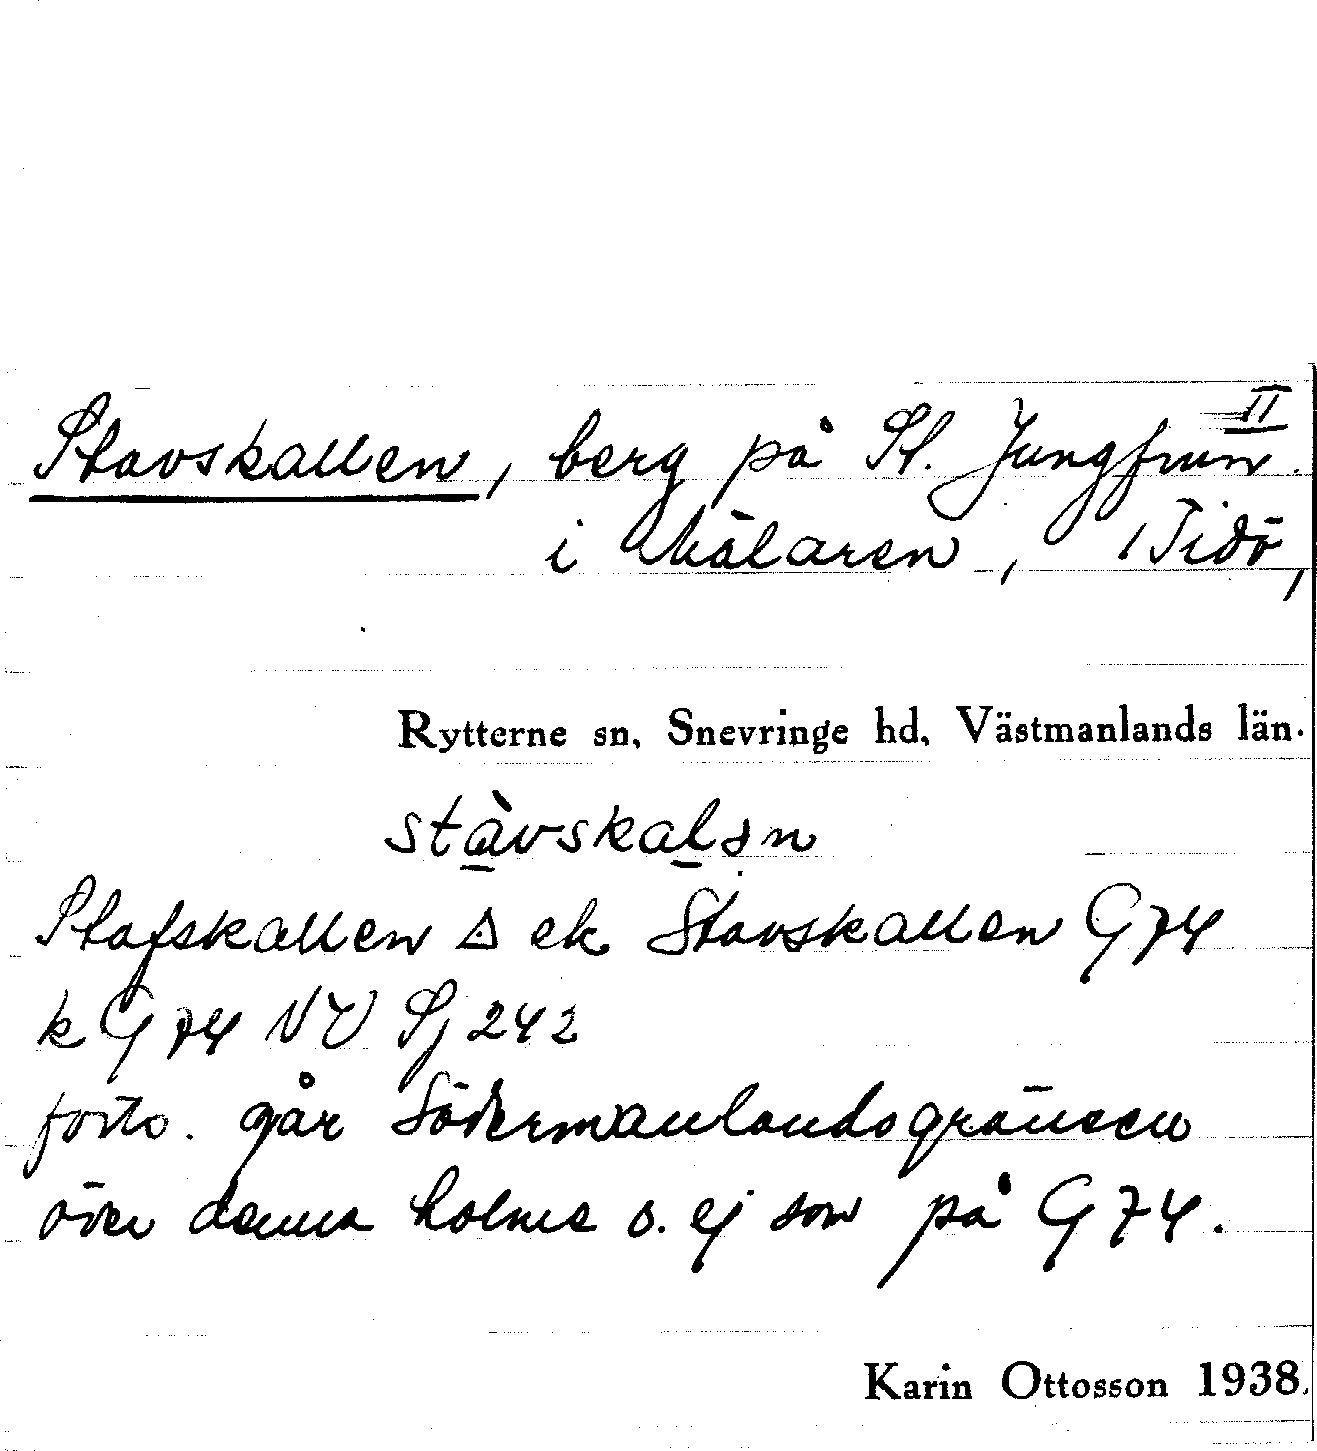 II
Stavskallen, berg på St. Jungfrun
i Mälaren, Tidö,
Rytterne sn, Snevringe hd, Västmanlands län.
stàvskalən
Stafskallen △ ek Stavskallen G 74
k G 74 NV Sj 242
går Södermanlandsgränsen
över denna holme o. ej som på G 74.
Karin Ottosson 1938.